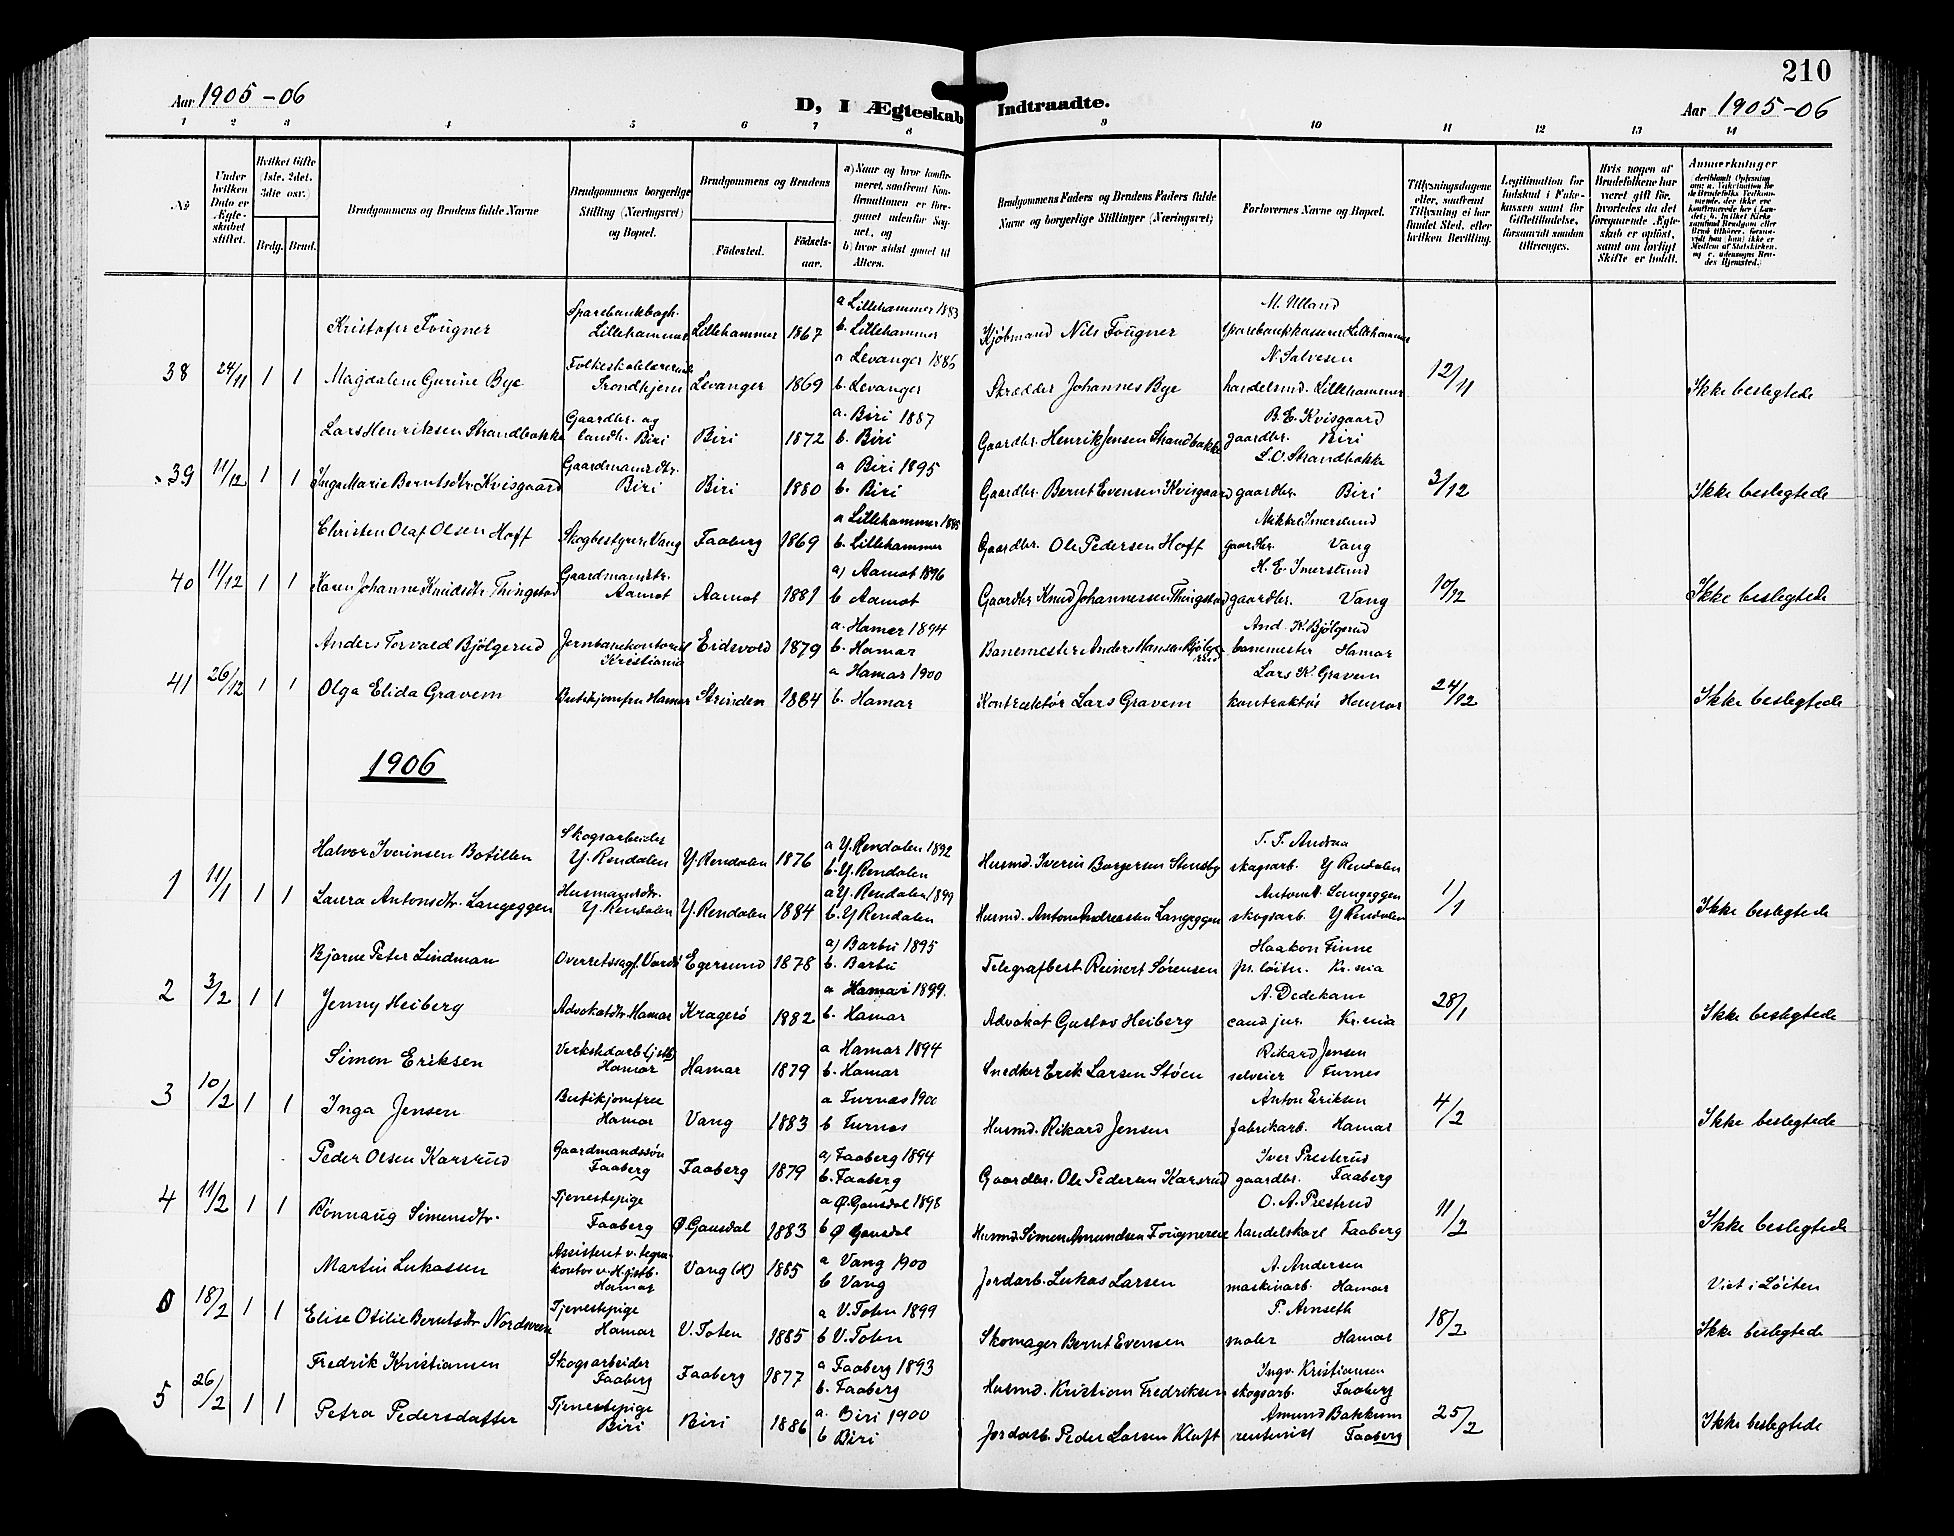 210
Aar 1905-06
D, I Ægteskab Indtraadte.
Aar 1905-06
1 2 3 4 5 6 7 8 9 10 11 12 13 14
No
Under hvilken Dato er Ægteskabet stiftet.
Hvilket Gifte (1ste. 2det. 3die osv.)
Brdg. Brud.
Brudgommens og Brudens fulde Navne
Brudgommens borgerlige Stilling (Næringsvei) og Bopæl.
Brudgommens og Brudens
Fødested. Fødsels-aar.
a) Naar og hvor konfirmeret, saafremt Konfirmationen er foregaaet udenfor Sognet, og
b) hvor sidst gaaet til Alters.
Brudgommens Faders og Brudens Faders fulde Navne og borgerlige Stillinger (Næringsvei)
Forlovernes Navne og Bopæl.
Tillysningsdagene eller, saafremt Tillysning ei har fundet Sted, efter hvilken Bevilling.
Legitimation for Indskud i Enkekassen samt for Giftetilladelse, forsaavidt saadan tiltrænges.
Hvis nogen af Brudefolkene har været gift før, hvorledes da det foregaaende Ægteskab er opløst, samt om lovligt Skifte er holdt.
Anmerkninger
Kristofer Fougner Sparebankbogh. Lillehammer Lillehammer 1867 a Lillehammer 1883 b. Lillehammer Kjøbmand Nils Fougner M. Ulland sparebankkasserer Lillehammer
38 24/11 1 1 Magdalene Gurine Bye Folkeskolelærerinde Trondhjem Levanger 1869 a Levanger 1885 b. Levanger Skrædder Johannes Bye N. Salvesen handelsmd. Lillehammer 12/11 Ikke beslegtede
Lars Henriksen Strandbakke Gaardbr. og landh. Biri Biri 1872 a. Biri 1887 b. Biri Gaardbr. Henrik Jensen Strandbakke B. E. Kvisgaard gaardbr. Biri
39 11/12 1 1 Inga Marie Berntsdtr. Kvisgaard Gaardmansdtr. Biri Biri 1880 a Biri 1895 b. Biri Gaardbr. Bernt Evensen Kvisgaard L. O. Strandbakke gaardbr. Biri 3/12 Ikke beslegtede
Christen Olaf Olsen Hoff Skogbestyrer Vang Faaberg 1869 a Lillehammer 1885 b. Lillehammer Gaardbr. Ole Pedersen Hoff Mikkel Imerslund gaardbr. Vang
40 11/12 1 1 Karen Johanne Knudsdtr Thingstad Gaardmansdtr. Aamot Aamot 1881 a) Aamot 1896 b Aamot Gaardbr Knud Johannessen Thingstad H. E. Imerslund gaardbr. Vang 10/12 Ikke beslegtede
Anders Torvald Bjølgerud Jernbanekontorist Kristiania Eidsvold 1879 a. Hamar 1894 b. Hamar Banemester Anders Hansen Bjølgerud And. K. Bjølgerud banemester Hamar
41 26/12 1 1 Olga Elida Gravem Butikjomfru Hamar Strinden 1884 a Hamar 1900 b. Hamar Kontraktør Lars Gravem Lars K. Gravem kontraktør Hamar 24/12 Ikke beslegtede
1906
Halvor Iverinsen Botillen Skogsarbeider Y. Rendalen Y. Rendalen 1876 a Y. Rendalen 1892 b. Y. Rendalen Husmd. Iverin Borgersen Stensby T. T. Andraa skogsarb. Y Rendalen
1 11/1 1 1 Laura Antonsdtr. Langeggen Husmansdtr. Y. Rendalen Y. Rendalen 1884 a Y. Rendalen 1899 b. Y Rendalen Husmd. Anton Andreassen Langeggen Anton A. Langeggen skogsarb. Y Rendalen 1/1 Ikke beslegtede
Bjarne Peter Lindman Overretssagf. Vardø Egersund 1878 a) Barbu 1895 b. Barbu Telegrafbest. Reinert Sørensen Haakon Finne pr. løitn. Kr.nia
2 3/2 1 1 Jenny Heiberg Advokatdtr Hamar Kragerø 1882 a Hamar 1899. b. Hamar Advokat Gustav Heiberg A. Dedekam cand jur. Kr.nia 28/1 Ikke beslegtede
Simen Eriksen Verkstedarb. Hamar Hamar 1879 a Hamar 1894 b. Hamar Snedker Erik Larsen Støen Rikard Jensen selveier Furnes
3 10/2 1 1 Inga Jensen Butikjomfru Hamar Vang 1883 a Furnes 1900 b Furnes Husmd. Rikard Jensen Anton Eriksen fabrikarb. Hamar 4/2 Ikke beslegtede
Peder Olsen Karsrud Gaardmandssøn Faaberg Faaberg 1879 a) Faaberg 1894 b. Faaberg Gaardbr. Ole Pedersen Karsrud Iver Presterud gaardbr. Faaberg
4 11/2 1 1 Rønnaug Simensdtr. Tjenestepige Faaberg Ø. Gausdal 1883 a Ø. Gausdal 1898 b Ø Gausdal Husmd. Simen Amundsen Fougnereie O. A. Prestrud handelskarl Faaberg 11/2 Ikke beslegtede
Martin Lukassen Assistent v. kontor v. Hamar Vang (H) 1885 a Vang 1900 b Vang Jordarb. Lukas Larsen A. Andersen maskinarb. Hamar Viet i Løiten
0 18/2 1 1 Elise Otilie Berntsdtr Nordsveen Tjenestepige Hamar V. Toten 1885 a V. Toten 1899 b V. Toten Skomager Bernt Evensen P. Arnseth maler Hamar 18/2 Ikke beslegtede
Fredrik Kristiansen Skogsarbeider Faaberg Faaberg 1877 a Faaberg 1893 b. Faaberg Husmd. Kristian Fredriksen Ingv. Kristiansen skogsarb. Faaberg
5 26/2 1 1 Petra Pedersdatter Tjenestepige Biri Biri 1886 a. Biri 1900 b Biri Jordarb. Peder Larsen Kluft Amund Bakkum rentenist Faaberg 25/2 Ikke beslegtede